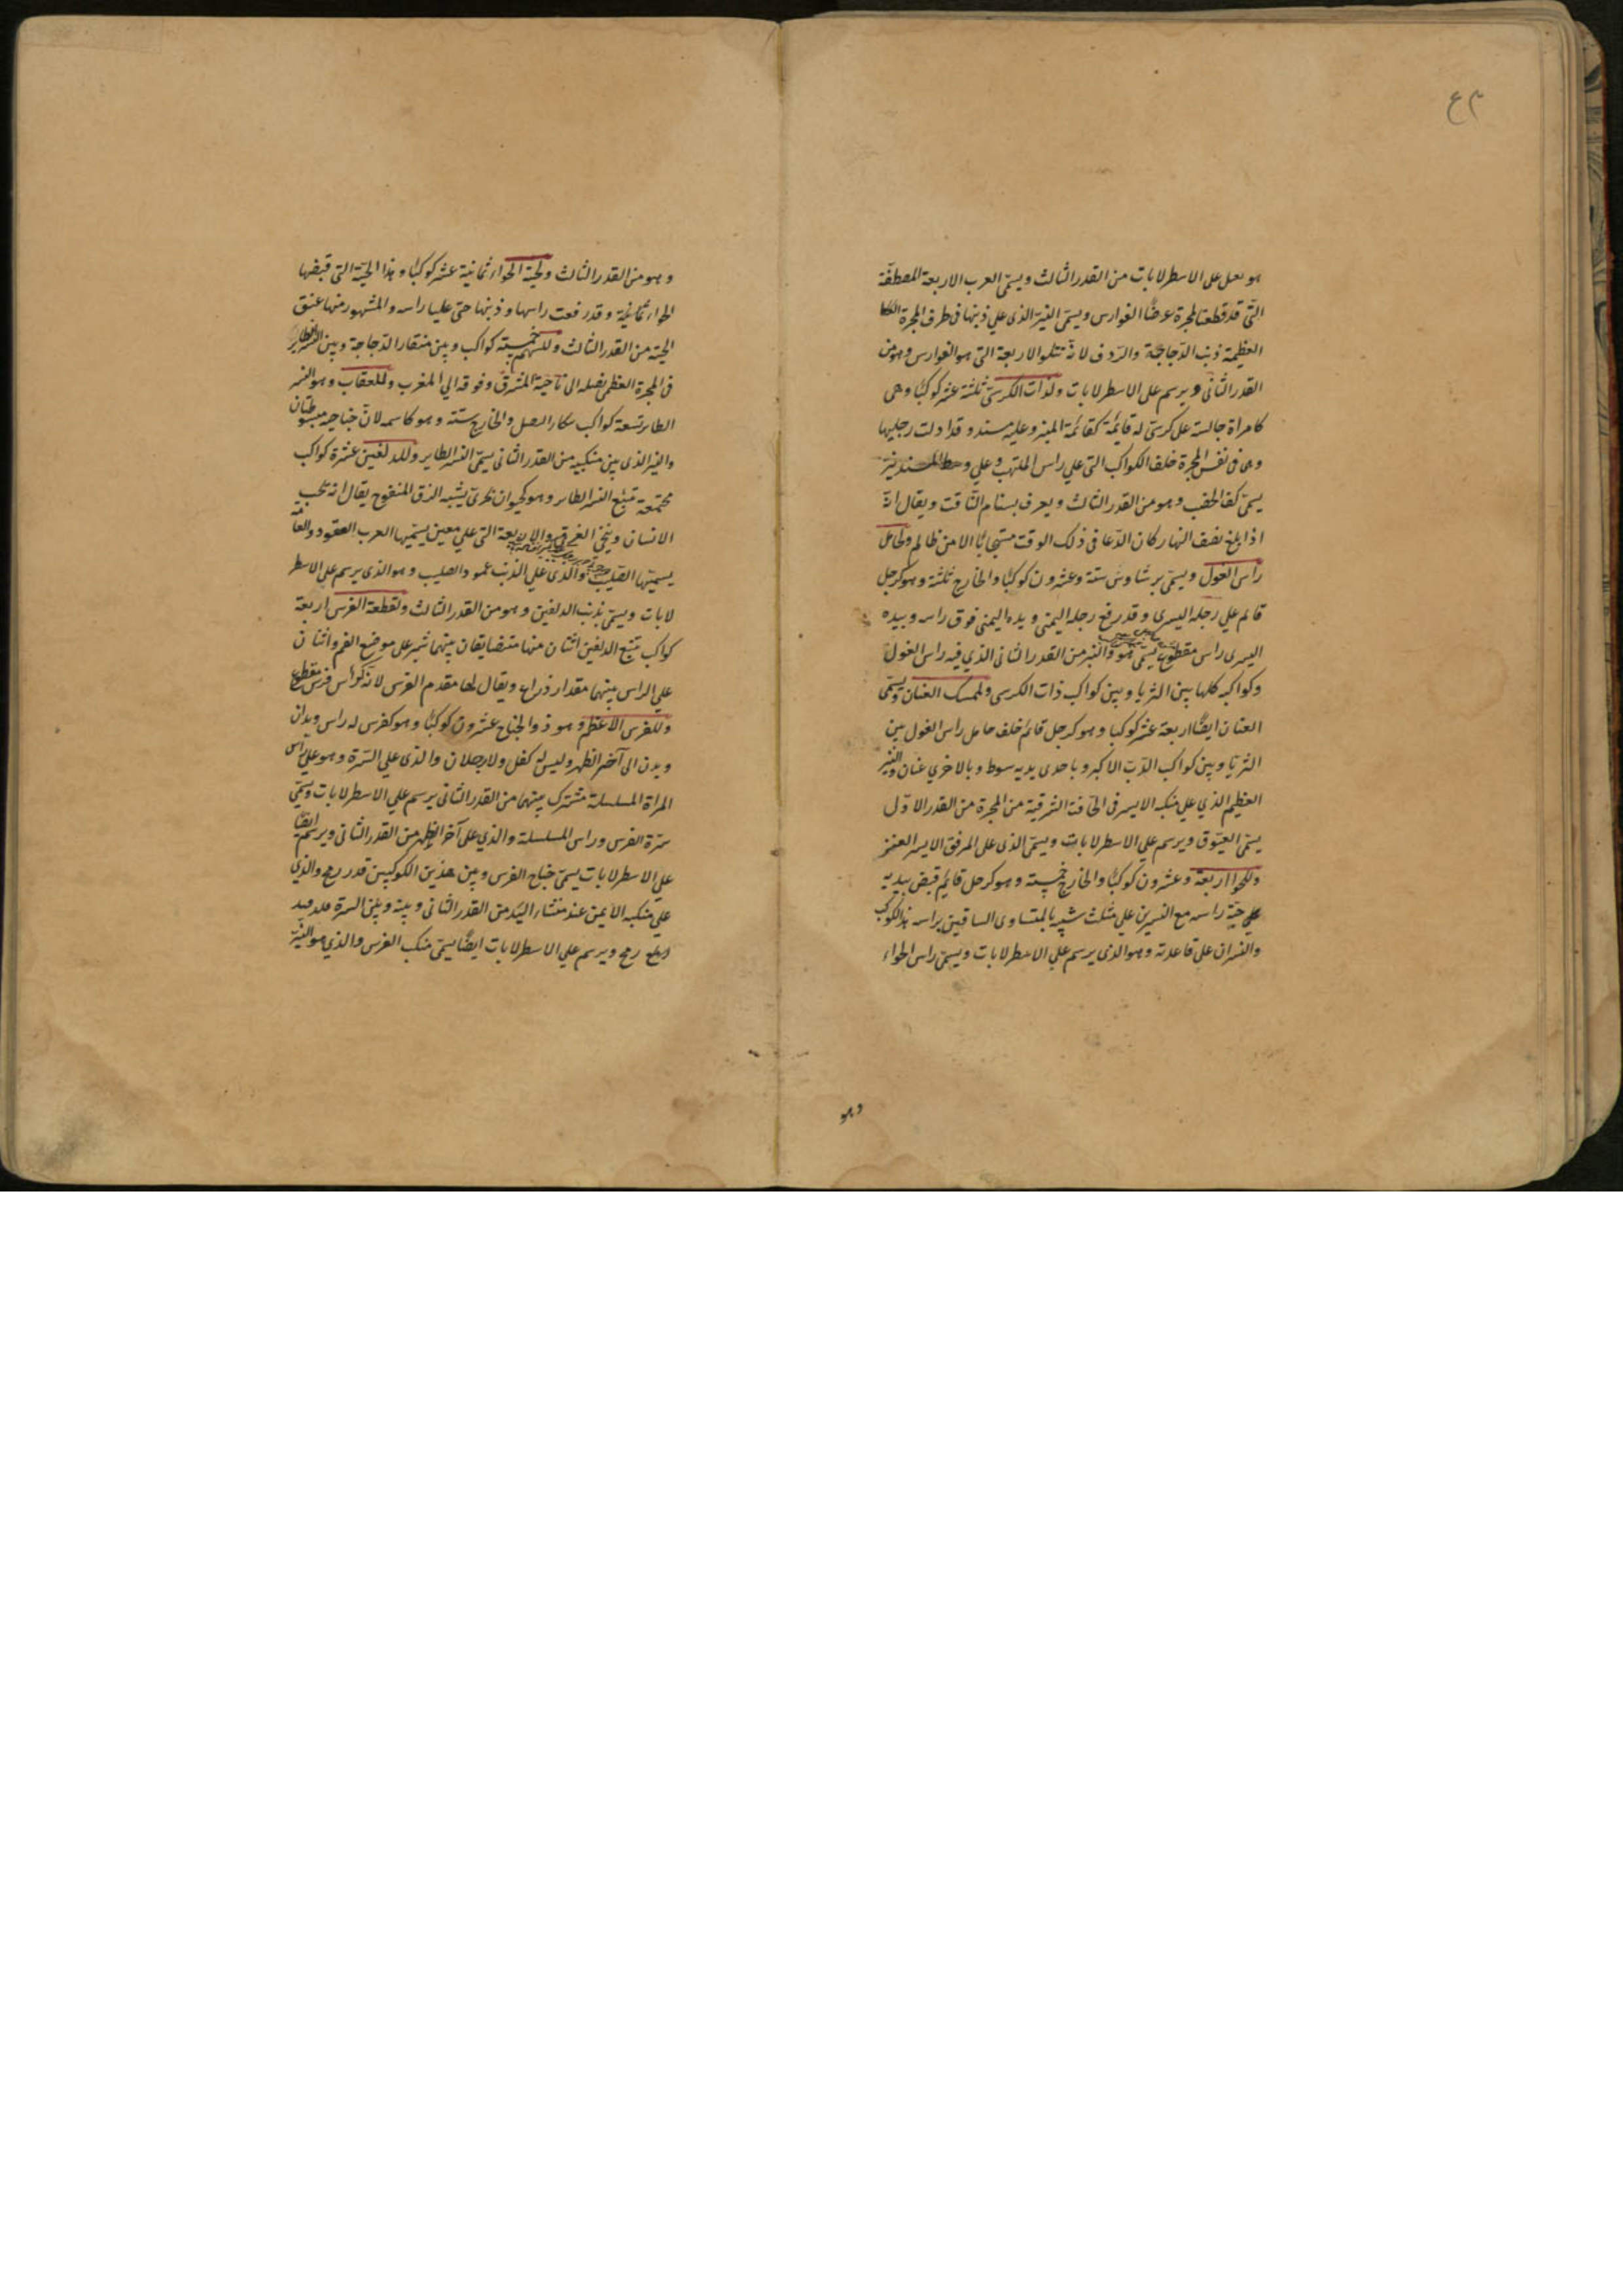 ٤٣
هو يعمل على الاسطرلابات من القدر الثالث ويسمّى العرب الاربعة المصطفّة
التّي قد قطعت المجرة عرضًا الفوارس ويسمّى النيّر الذي علي ذنبها في طرف المجرة
العظيمة ذنب الدّجاجة والرّدف لانّه تتلو الاربعة التي هو الفوارس وهو من
القدر الثانى ويرسم على الاسطرلابات ولذات الكرسّى ثلثة عشر كوكبًا وهى
كامراة جالسة على كرسّى له قايمة كقائمة المنبر وعليه مسند وقد ادلت رجليها
وهى في نفس المجرة خلف الكواكب التى علي راس الملتهب وعلي وسط المسند نيّر
يسمّى كفّ الخضيب وهو من القدر الثالث ويعرف بسنام النّاقة ويقال انّه
اذا بلغ نصف النهار كان الدّعا في ذلك الوقت مستجابًا الا من ظالم ولحامل
راس الغول ويسمّى برشاوش ستّة وعشرون كوكبًا والخارج ثلثة وهو كرجل
قائم علي رجله اليسرى وقد رفع رجله اليمنى ويده اليمنى فوق راسه وبيده
اليسرى راس مقطوع يسمّى هو والنيّر من القدر الثانى الذي فيه راس الغول
وكواكبه كلها بين الثريا وبين كواكب ذات الكرسى ولممسك العنان ويسمّى
العنان ايضًا اربعة عشر كوكبا وهو كرجل قائم خلف حامل راس الغول بين
الثريّا وبين كواكب الدّبّ الاكبر وباحدى يديه سوط وبالاخري عنان والنيّر
العظيم الذي علي منكبه الايسر فى الحافة الشرقية من المجرة من القدر الاوّل
يسمّى العيّوق ويرسم علي الاسطرلابات ويسمّى الذى على المرفق الايسر العنز
وللحوا اربعة وعشرون كوكبًا والخارج خمسة وهو كرجل قائم قبض بيديه
علي حيّة راسه مع النسرين علي مثلث شبيه بالمتساوى الساقين براسه هذا الكوكب
والنسران على قاعدته وهو الذى يرسم على الاسطرلابات ويسمّى راس الحواء
وهو
وهو من القدر الثالث ولحيّة الحواء ثمانية عشر كوكبًا وهذا الحيّة التى قبضها
الحواء وقد رفعت راسها وذنبها حتى عليا راسه والمشهور منها عنق
الحيّة من القدر الثالث وللسّهم خمسة كواكب وبين منقار الدّجاجة وبين النسر الطاير
في المجرة العظمى نصله الى ناحية المشرق وفوقه الي المغرب وللعقاب وهو النسر
الطاير تسعة كواكب والخارج ستّة وهو كاسمه لانّ جناحيه مبسوطتان
والنيّر الذى بين منكبيه من القدر الثانى يسمّى النسر الطاير وللدلفين عشرة كواكب
مجتمعة تتبع النسر الطاير وهو كحيوان بحرىّ يشبه الزق المنفوخ يقال انه يحب
الانسان وينجّي الغريق والاربعة التى علي معين يسمّيها العرب العقود والعامّة
يسمّيها الصّليب والذى علي الذنب عمود الصليب وهو الذى يرسم على الاسطر
لابات ويسمّى ذنب الدلفين وهو من القدر الثالث ولقطعة الفرس اربعة
كواكب تتبع الدلفين اثنان منها متضايقان بينهما شبر على موضع الفم واثنان
علي الراس بينهما مقدار ذراع ويقال لها مقدم الفرس لانّه كراس فرس مقطوع
وللفرس الاعظم وهو ذو الجناح عشرون كوكبًا وهو كفرس له راس ويدان
وبدن الى آخر الظهر وليس له كفل ولا رجلان والذى علي السّرة وهو علي راس
المراة المسلسلة مشترك بينهما من القدر الثانى يرسم علي الاسطرلابات ويسمّى
سرّة الفرس وراس المسلسلة والذي على آخر الظهر من القدر الثانى ويرسم ايضًا
علي الاسطرلابات يسمّى جناح الفرس وبين هذين الكوكبين قدر رمح والذي
علي منكبه الايمن عند منشاء اليد من القدر الثانى وبينه وبين السرة
رمح ويرسم علي الاسطرلابات ايضًا يسمّى منكب الفرس والذي هو النيّر